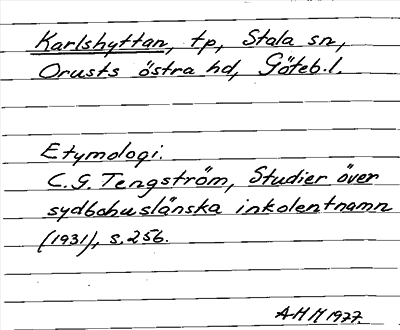 Karlshyttan, tp, Stala sn,
Orusts östra hd, Göteb.l.
Etymologi.
C.G. Tengström, Studier över
sydbohuslänska inkolentnamn
(1931), s.256.
AHM 1977.